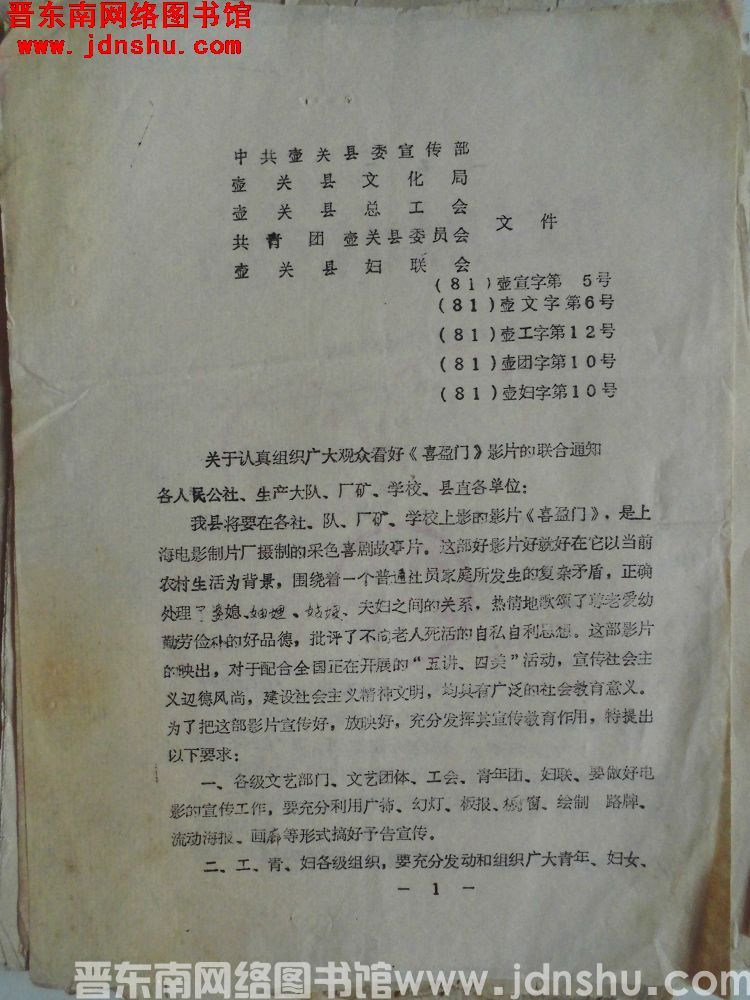 晋东南网络图书馆
www.jdnshu.com
中共壶关县委宣传部
壶关县文化局
壶关县总工会
文件
共青团壶关县委员会
壶关县妇联会
(81)壶宣字第 5号
(81)壶文字第6号
(81)壶工字第12号
(81)壶团字第10号
(81)壶妇字第10号
关于认真组织广大观众看好《喜盈门》影片的联合通知
各人民公社、生产大队、厂矿、学校、县直各单位:
我县将要在各社、队、厂矿、学校上影的影片《喜盈门》,是上
海电影制片厂摄制的采色喜剧故事片。这部好影片好就好在它以当前
农村生活为背景,围绕着一个普通社员家庭所发生的复杂矛盾,正确
处理了婆媳、妯娌、姑嫂、夫妇之间的关系,热情地歌颂了尊老爱幼
勤劳俭朴的好品德,批评了不向老人死活的自私自利思想。这部影片
的映出,对于配合全国正在开展的“五讲、四美”活动,宣传社会主
义辺德风尚,建设社会主义精神文明,均具有广泛的社会教育意义。
为了把这部影片宣传好,放映好,充分发挥其宣传教育作用,特提出
以下要求:
一、各级文艺部门、文艺团体、工会、青年团、妇联、要做好电
影的宣传工作,要充分利用广播、幻灯、板报、橱窗、绘制 路牌、
流动海报、画廊等形式搞好予告宣传。
二、工、青、妇各级组织,要充分发动和组织广大青年、妇女、
— 1 —
晋东南网络图书馆www.jdnshu.com